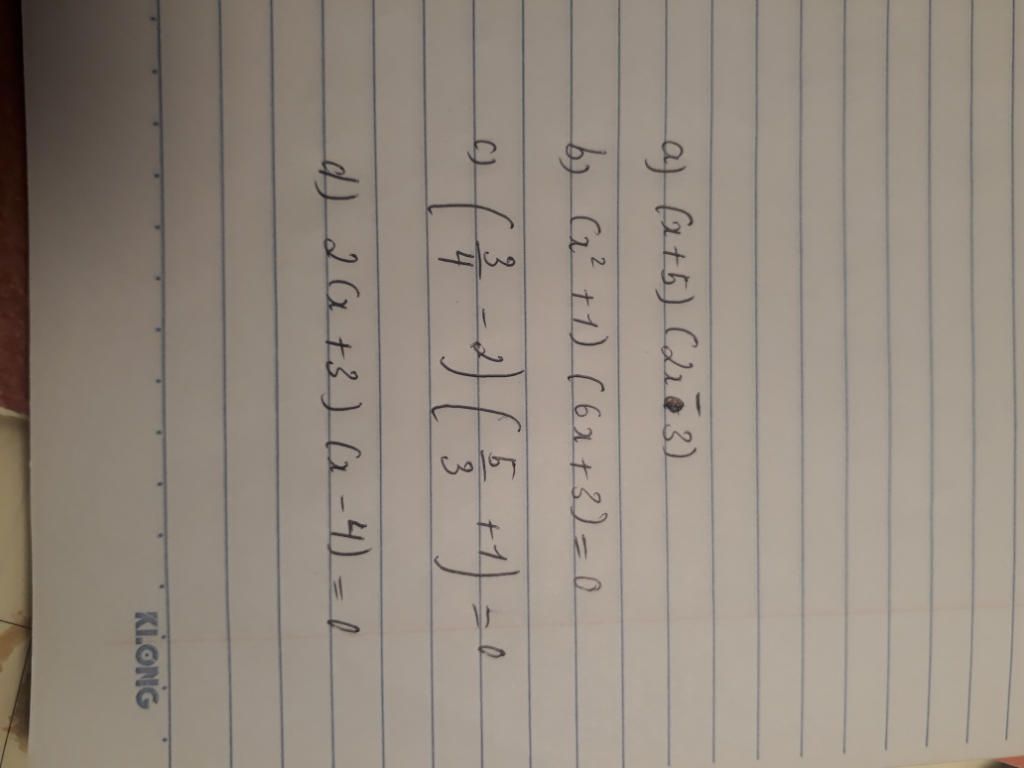 a) (x+5)(2x-3)
b) (x² +1) (6x+3)=0
c) (3/4 - 2) (5/3 +1) = 0
d) 2(x +3) (x -4) = 0
KLONG